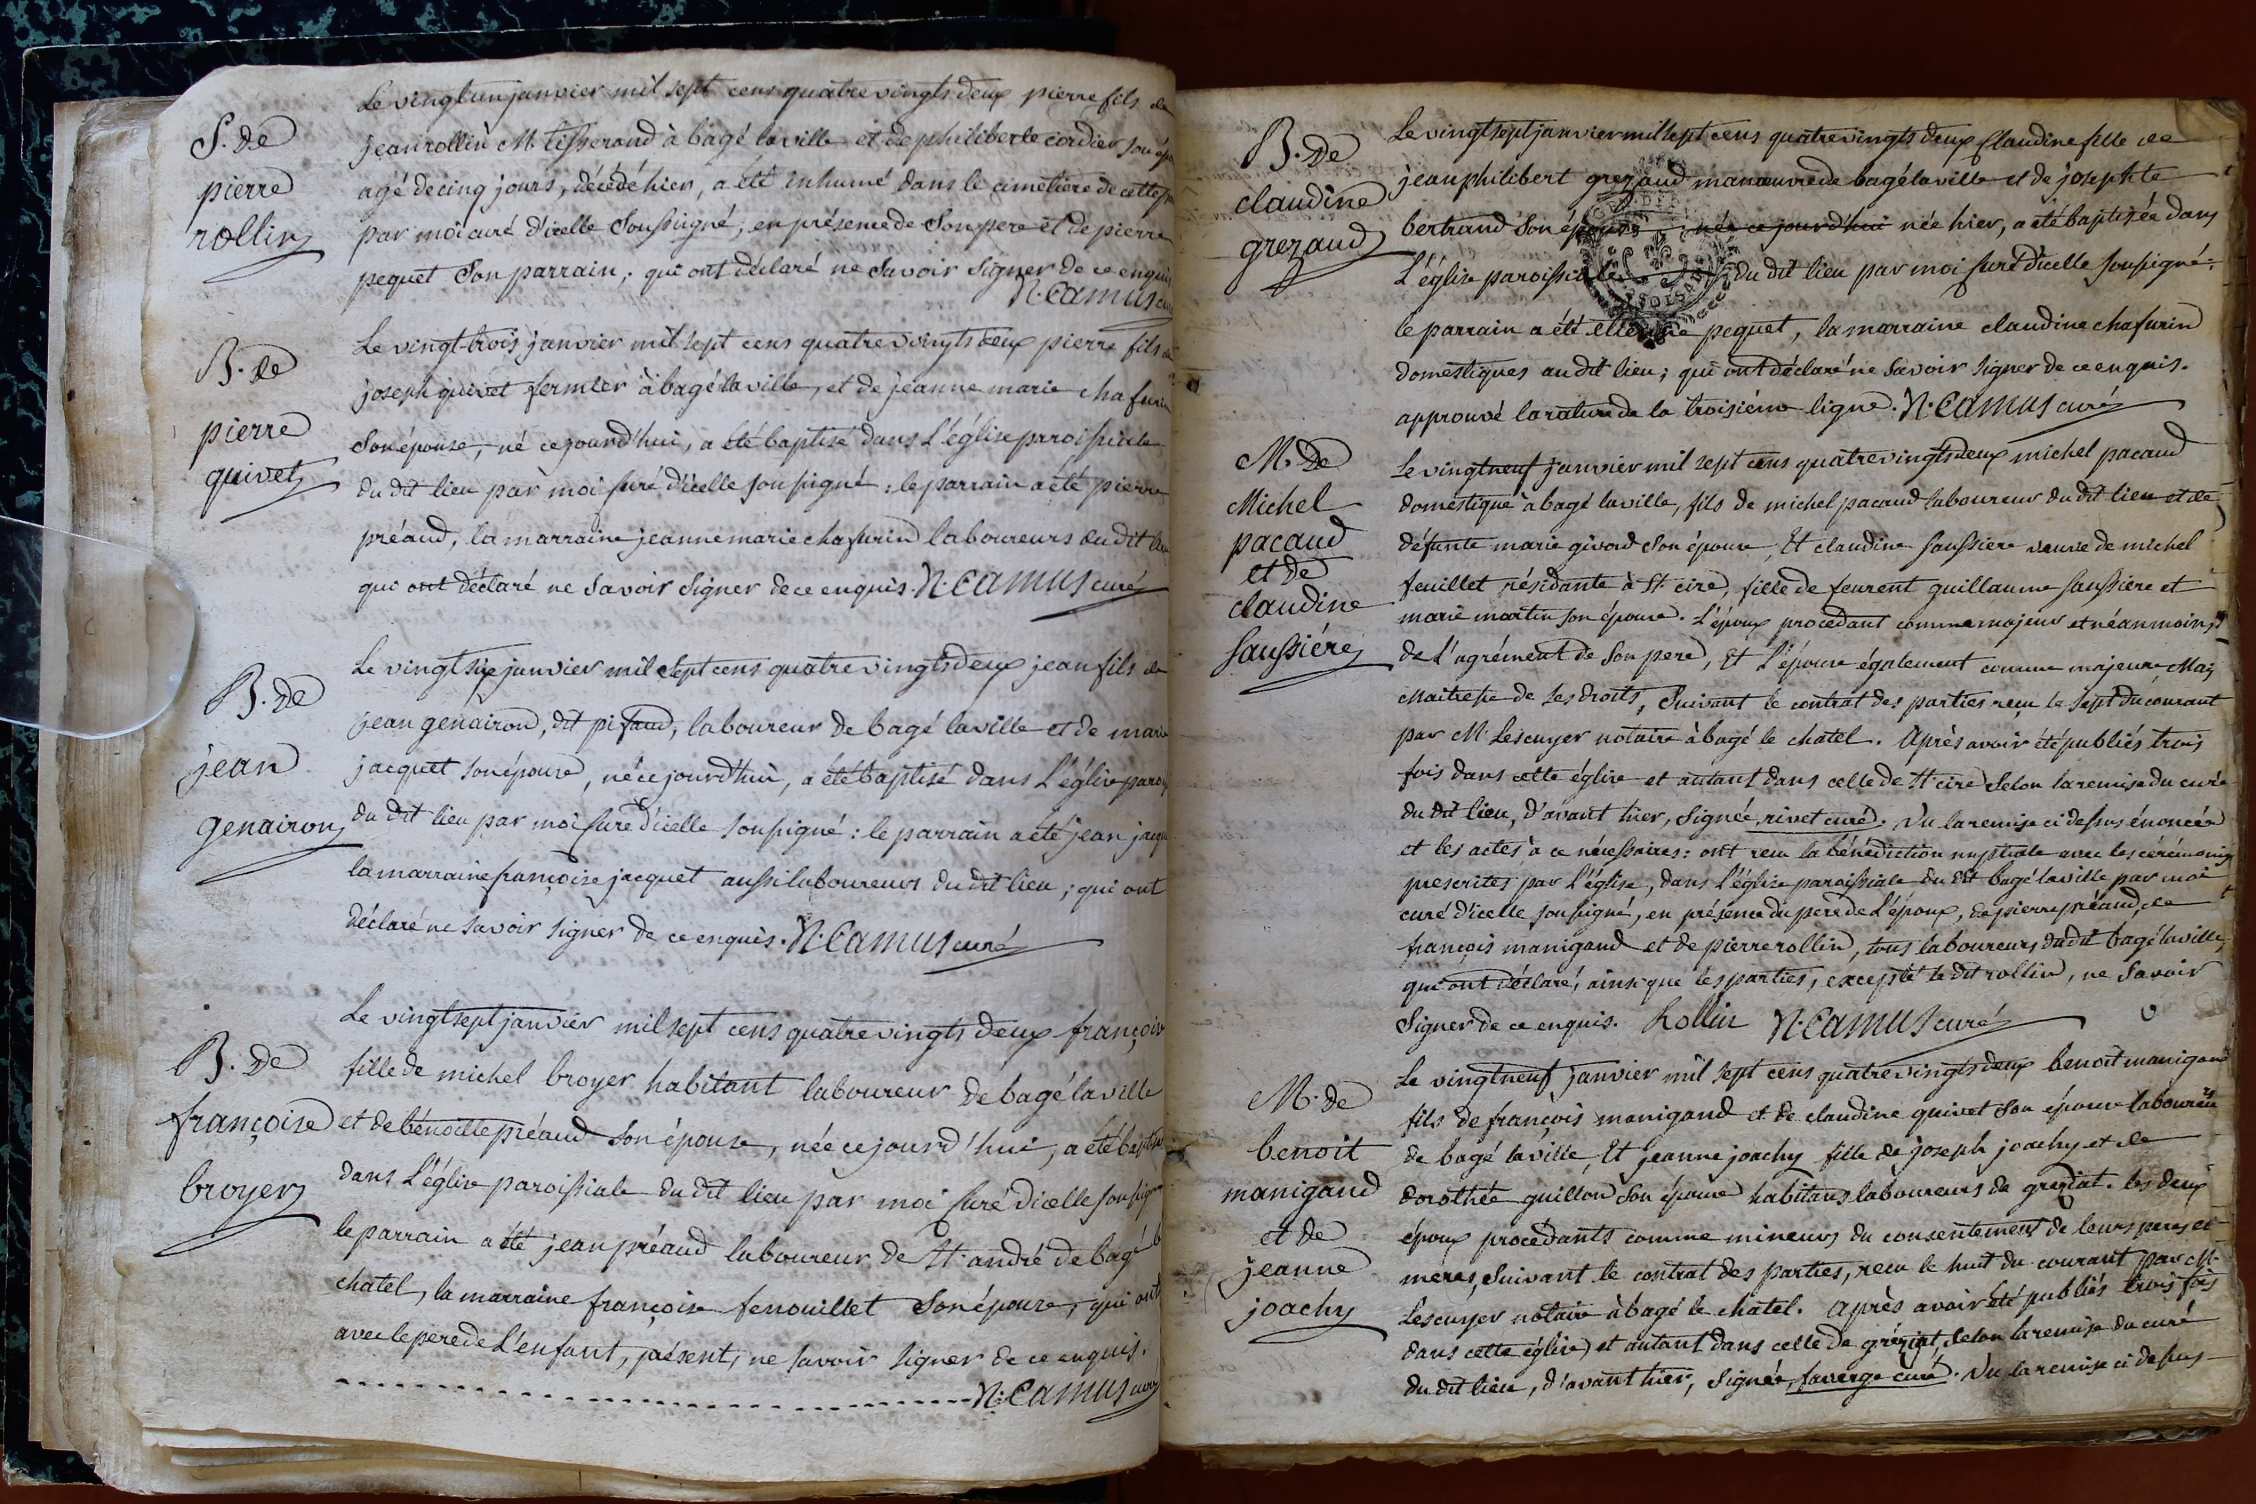 S. de
pierre
rollin
Le vingt un janvier mil sept cens quatre vingts deux pierre fils de
jean rollin M. tisserand à bagé la ville et de philiberte cordier son
agé de cinq jours, décédé hier, a été inhumé dans le cimetiere de cette
par moi curé d'icelle soussigné, en présence de son pere et de pierre
pequet son parrain, qui ont déclaré ne savoir signer de ce enquis
N. Camus
B. de
pierre
quivet
Le vingt-trois janvier mil sept cens quatre vingts deux pierre fils de
joseph quivet fermier à bagé la ville, et de jeanne marie chafurin
son épouse, né ce jourd'hui, a été baptisé dans l'église paroissiale
du dit lieu par moi curé d'icelle soussigné : le parrain a été pierre
préaud, la marraine jeanne marie chafurin laboureurs du dit lieu
qui ont déclaré ne savoir signer de ce enquis. N. Camus curé
B. de
jean
genairon
Le vingt six janvier mil sept cens quatre vingts deux jean fils de
jean genairon, dit pifaud, laboureur de bagé la ville et de marie
jacquet son épouse, né ce jourd'hui, a été baptisé dans l'église
du dit lieu par moi curé d'icelle soussigné : le parrain a été jean
la marraine françoise jacquet aussi laboureurs du dit lieu ; qui ont
déclaré ne savoir signer de ce enquis. N. Camus curé
B. de
françoise
broyer
Le vingt sept janvier mil sept cens quatre vingts deux françoise
fille de michel broyer habitant laboureur de bagé la ville
et de bénoitte préaud son épouse, née ce jourd'hui, a été
dans l'église paroissiale du dit lieu par moi curé d'icelle
le parrain a été jean préaud laboureur de St. andré de bagé
chatel, la marraine françoise fenouillet son épouse, qui ont
avec le pere de l'enfant, présent, ne savoir signer de ce enquis.
N. Camus curé
B. de
claudine
grezaud
Le vingt sept janvier mil sept cens quatre vingts deux Claudine fille de
jean philibert grezaud manœuvre de bagé la ville et de josephte
bertrand son épouse, née ce jourd'hui née hier, a été baptisée dans
L'église paroissiale du dit lieu par moi curé d'icelle soussigné :
le parrain a été etienne pequet, la marraine claudine chafurin
domestiques au dit lieu ; qui ont déclaré ne savoir signer de ce enquis.
approuvé la rature de la troisiéme ligne. N. Camus curé
M. de
Michel
pacaud
et de
claudine
saussiére
Le vingt neuf janvier mil sept cens quatre vingts deux michel pacaud
domestique à bagé la ville, fils de michel pacaud laboureur du dit lieu et de
défunte marie givord son épouse, Et claudine saussiere veuve de michel
feuillet résidante à St. cire, fille de feurent guillaume saussiere et
marie martin son épouse. L'époux procedant comme majeur et néanmoins
de l'agrément de son pere, Et l'épouse également comme majeure, Mai
Maitresse de ses droits, suivant le contrat des parties reçu le sept du courant
par M. Lescuyer notaire à bagé le chatel. Après avoir été publiés trois
fois dans cette église et autant dans celle de St. cire selon la remise du curé
du dit lieu, d'avant hier, signée, rivet curé. Vu la remise ci dessus énoncée
et les actes à ce nécessaires : ont reçu la bénédiction nuptiale avec les cérémonies
prescrites par l'église, dans l'église paroissiale du dit bagé la ville par moi
curé d'icelle soussigné, en présence du pere de l'époux, de pierre préaud, de
françois manigand et de pierre rollin, tous laboureurs du dit bagé la ville,
qui ont déclaré, ainsi que les parties, excepté le dit rollin, ne savoir
Signer de ce enquis. Rollin N. Camus curé
M. de
benoit
manigand
et de
jeanne
joachy
Le vingt neuf janvier mil sept cens quatre vingts deux benoit manigand
fils de françois manigand et de claudine quivet son épouse laboureurs
de bagé la ville, Et jeanne joachy fille de joseph joachy et de
dorothée guillon son épouse habitans laboureurs de greziat. les deux
époux procédants comme mineurs du consentement de leurs peres et
méres, suivant le contrat des parties, reçu le huit du courant par M.
Lescuyer notaire à bagé le chatel. Après avoir été publiés trois fois
dans cette église et autant dans celle de gréziat, selon la remise du curé
du dit lieu, d'avant hier, signée, faverge curé. Vu la remise ci dessus